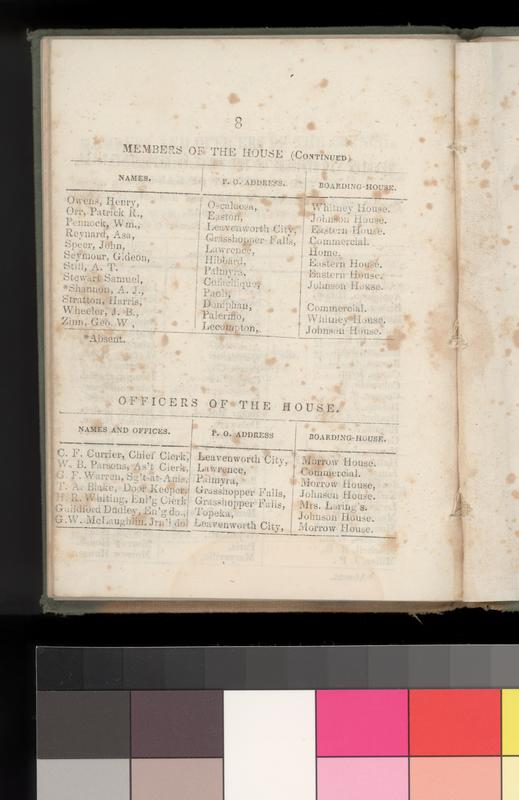 8
MEMBERS OF THE HOUSE (CONTINUED)
NAMES. P. O. ADDRESS. BOARDING-HOUSE.
Owens, Henry, Oscaloosa, Whitney House.
Orr, Patrick R., Easton, Johnson House.
Pennock, Wm., Leavenworth City, Eastern House.
Reynard, Asa, Grasshopper Falls, Commercial.
Speer, John, Lawrence, Home.
Seymour, Gideon, Hibbard, Eastern House.
Still, A. T. Palmyra, Eastern House.
Stewart Samuel, Johnson House.
*Shannon, A. J., Paoli,
Stratton, Harris, Doniphan, Commercial.
Wheeler, J. B., Palermo, Whitney House.
Zinn, Geo. W., Lecompton, Johnson House.
*Absent.
OFFICERS OF THE HOUSE.
NAMES AND OFFICES. P. O. ADDRESS BOARDING-HOUSE.
C. F. Currier, Chief Clerk, Leavenworth City, Morrow House.
W. B. Parsons, As't Clerk, Lawrence, Commercial.
G. F. Warren, Sg't-at-Arms. Palmyra, Morrow House,
T. A. Blake, Door Keeper. Grasshopper Falls, Johnson House.
H. R. Whiting, Enl'g Clerk Grasshopper Falls, Mrs. Loring's.
Guildford Dudley, En'g do., Topeka, Johnson House.
G. W. McLaughlin, Jrn'l do Leavenworth City, Morrow House.